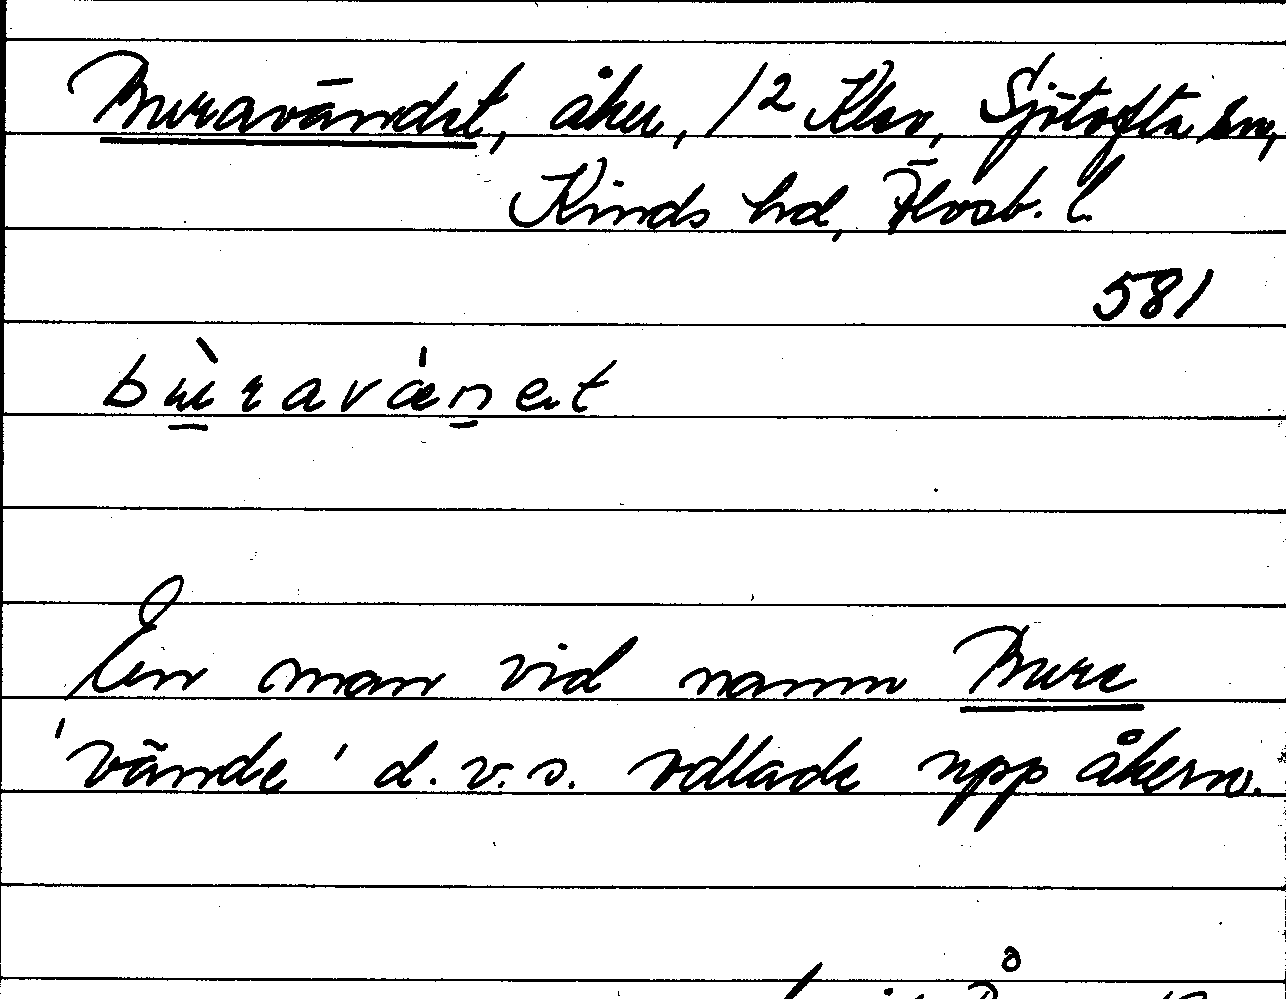 Buravändet, åker, 12 Klev, Sjötofta sn,
Kinds hd, Älvsb. l.
581
bùravǽnet
En man vid namn Bure
'vände' d.v.s. odlade upp åkern.